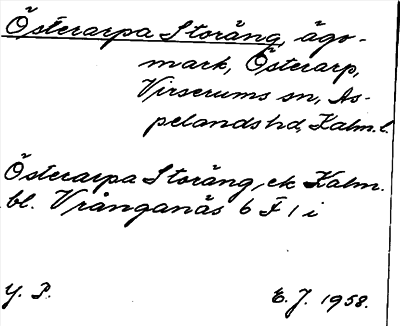 Österarpa Storäng, ägo-
mark, Österarp,
Virserums sn, As-
pelands hd, Kalm. l.
Österarpa Storäng, ek Kalm.
bl. Vrånganäs 6 F 1 i
Y. P. E. J. 1958.